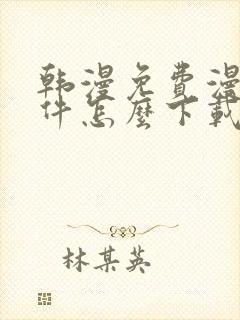 韩漫免费漫
件怎麼下載
林某英